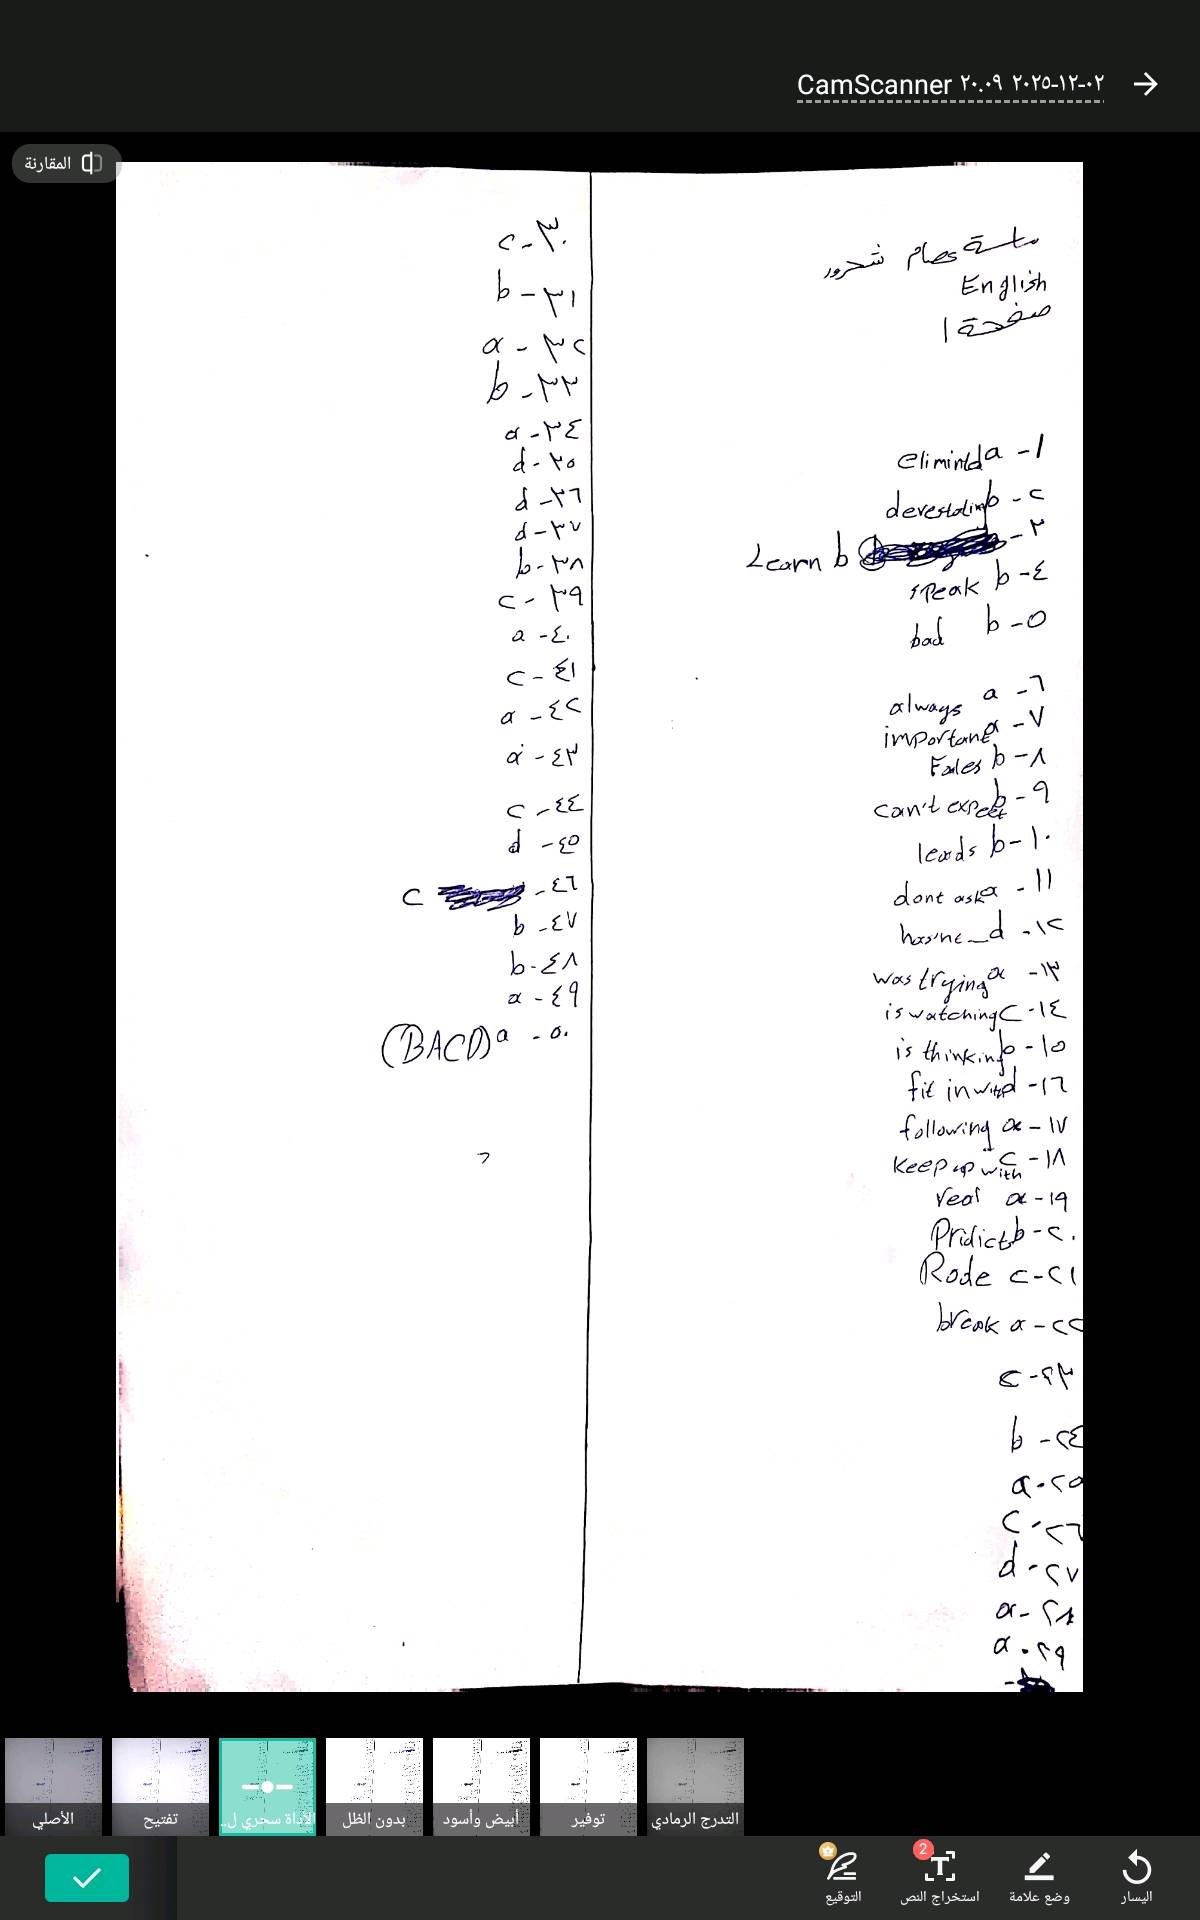 CamScanner ٠٢-١٢-٢٠٢٥ ٢٠.٠٩
المقارنة
ماسة عصام شحرور
English
صفحة ١
١- a elimintd
٢- b
٣- b Learn
٤- b speak
٥- b bad
٦- a always
٧- a important
٨- b Fales
٩- b can't expect
١٠- b leads
١١- a dont ask
١٢- d
١٣- a was trying
١٤- c is watching
١٥- b is thinking
١٦- d fit in with
١٧- a following
١٨- c keep up with
١٩- a real
٢٠- b Pridict
٢١- c Rode
٢٢- a break
٢٣- c
٢٤- b
٢٥- a
٢٦- c
٢٧- d
٢٨- a
٢٩- a
٣٠- c
٣١- b
٣٢- a
٣٣- b
٣٤- a
٣٥- d
٣٦- d
٣٧- d
٣٨- b
٣٩- c
٤٠- a
٤١- c
٤٢- a
٤٣- a
٤٤- c
٤٥- d
٤٦- c
٤٧- b
٤٨- b
٤٩- a
٥٠- a (BACD)
الأصلي
تفتيح
الأداة سحري ل...
بدون الظل
أبيض وأسود
توفير
التدرج الرمادي
التوقيع
2
استخراج النص
وضع علامة
اليسار